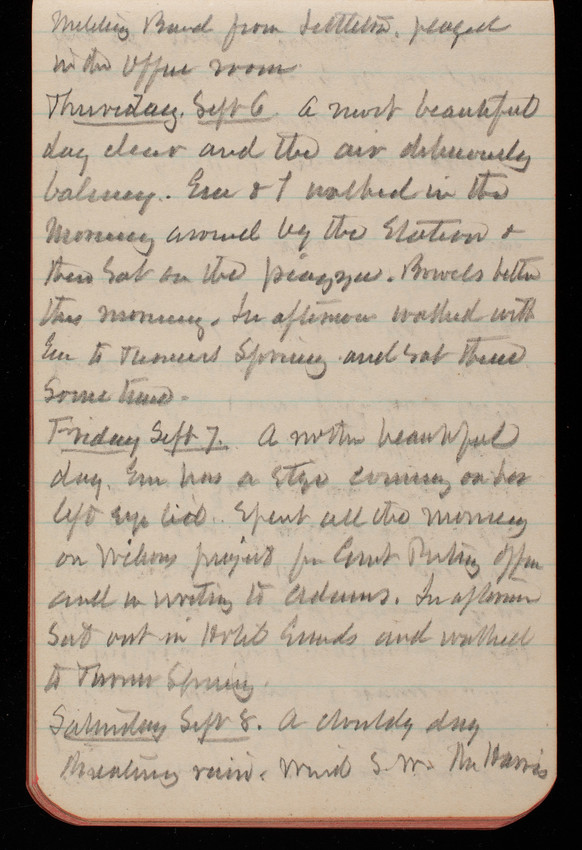 Band from Littleton, played
in the Office room
Thursday. Sept 6 A most beautiful
day clear and the air deliciously
balmy. Em & I walked in the
Morning around by the Station &
then Sat on the piazza. Bowels better
this morning. In afternoon walked with
Em to Spring and Sat there
Some time.
Friday Sept 7. Another beautiful
day. Em has a Stye coming on her
left eye lid. Spent all the morning
on Wilsons project for Govt Printing Office
and in writing to Adams. In afternoon
Sat out in Hotel Grounds and walked
to Spring.
Saturday Sept 8. A cloudy day
threatening rain. Wind S.W. Harris